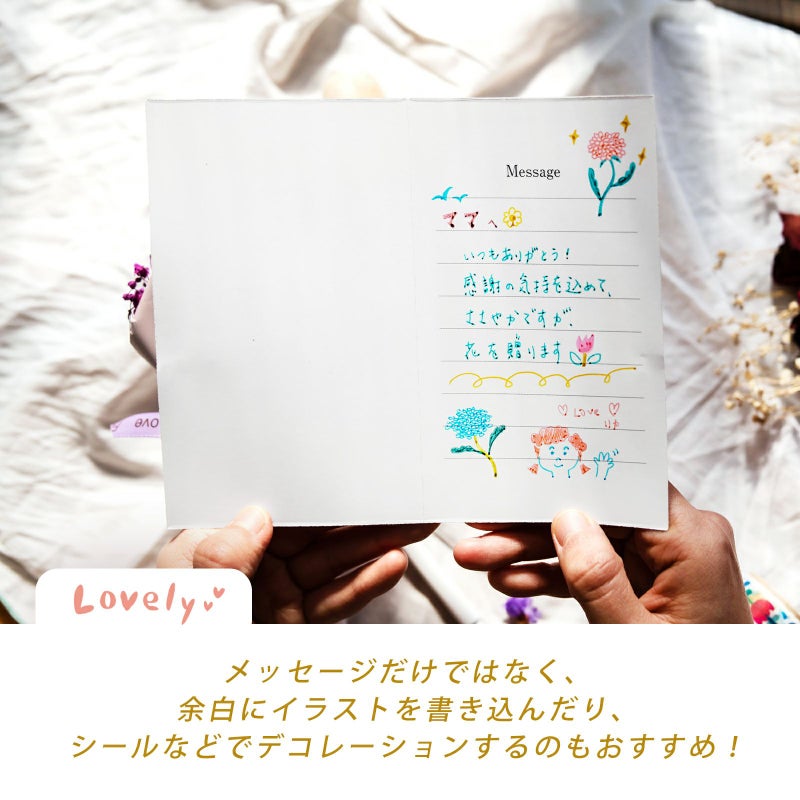 Message
ママへ
いつもありがとう!
感謝の気持を込めて、
ささやかですが、
花を贈ります
Love
りか
Love
Lovely
メッセージだけではなく、
余白にイラストを書き込んだり、
シールなどでデコレーションするのもおすすめ!